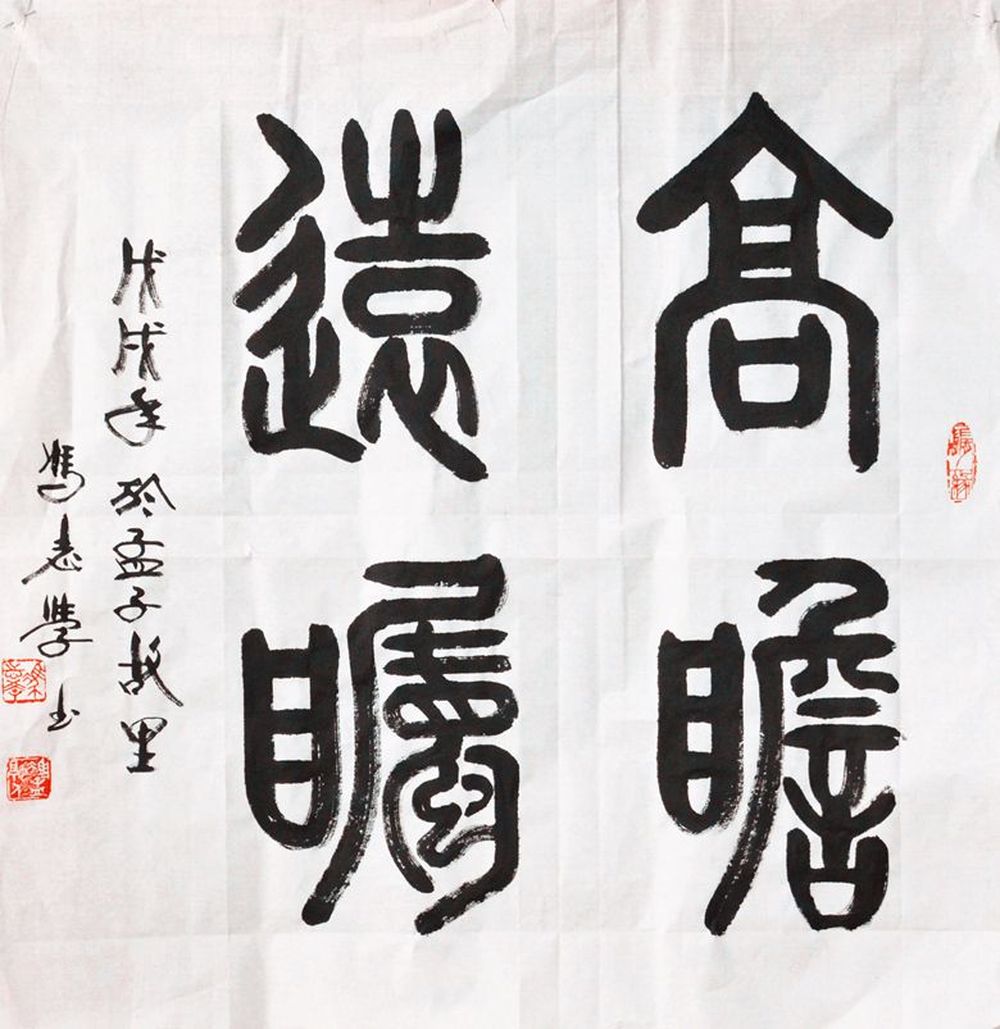 高瞻
遠矚
戊戌年於孟子故里
馮志學書